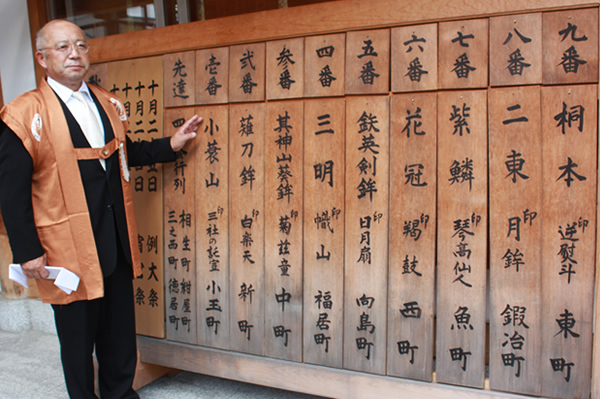 十月二十五日 例大祭
先達 四 列 相生町 紺屋町 三之西町 徳居町
壱番 小蓑山 印 三社の託宣 小玉町
弐番 薙刀鉾 印 白楽天 新町
参番 其神山葵鉾 印 菊慈童 中町
四番 三明 印 幟山 福居町
五番 鉄英剣鉾 印 日月扇 向島町
六番 花冠 印 羯鼓 西町
七番 紫鱗 印 琴高仙人 魚町
八番 二東 印 月鉾 鍛冶町
九番 桐本 印 逆熨斗 東町